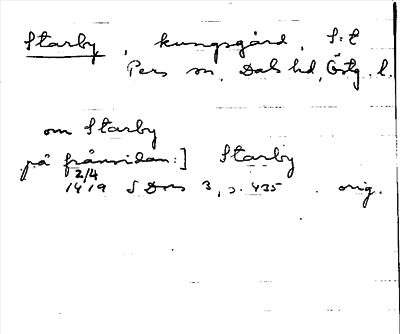 Starby, kungsgård, S:t
Pers sn, Dals hd, Östg. l.
om Starby
på frånsidan:] Starby
2/4
1419 SD ns 3, s. 435 orig.